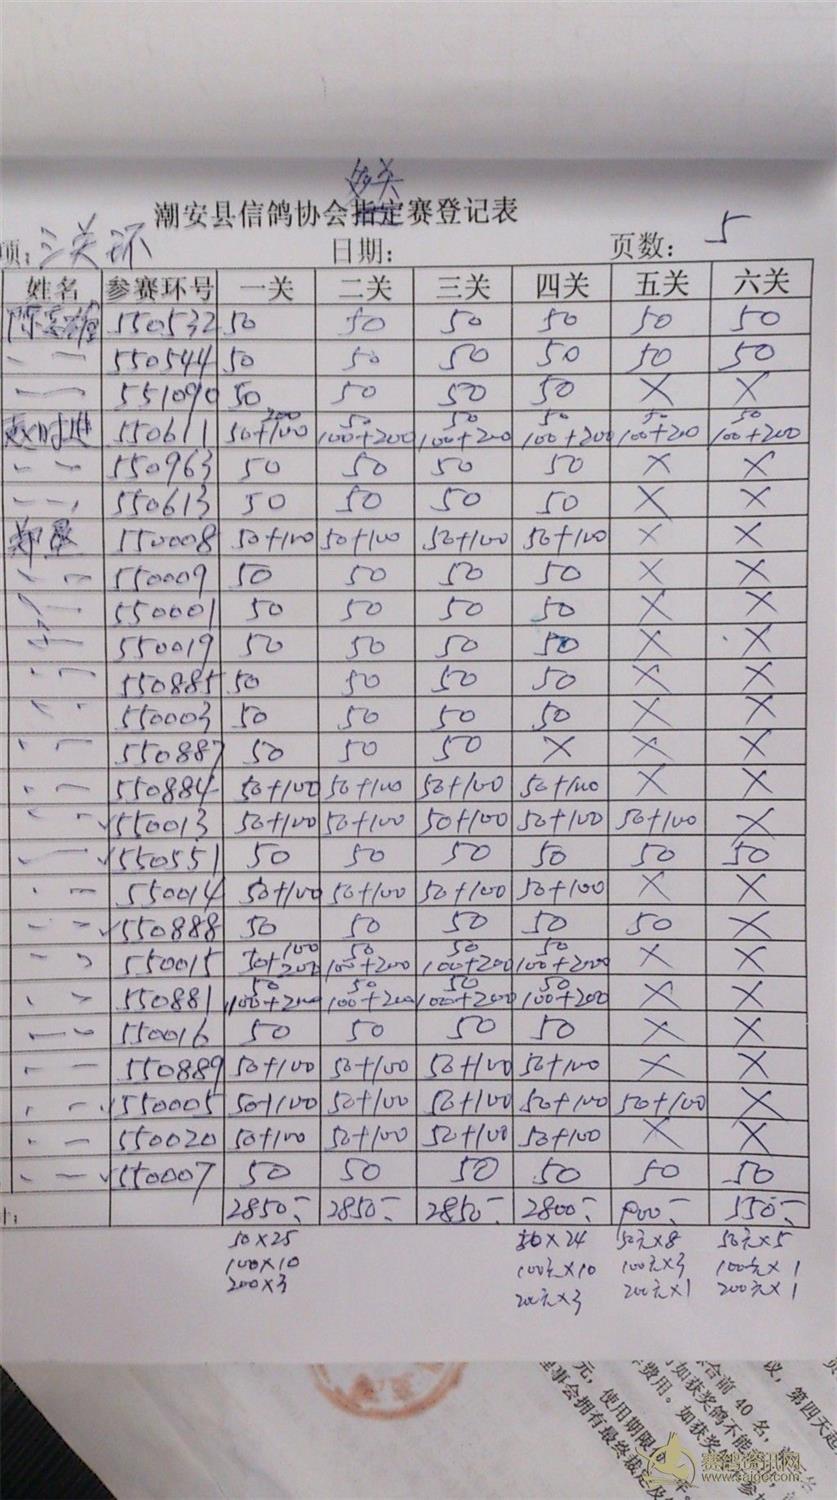 多关
潮安县信鸽协会指定赛登记表
项: 三关环 日期: 页数: 5
姓名 参赛环号 一关 二关 三关 四关 五关 六关
550532 50 50 50 50 50 50
550544 50 50 50 50 50 50
551090 50 50 50 50 × ×
赵时进 550611 50+100 200 50 100+200 50 100+200 50 100+200 50 100+200 50 100+200
550963 50 50 50 50 × ×
550613 50 50 50 50 × ×
550008 50+100 50+100 50+100 50+100 × ×
550009 50 50 50 50 × ×
550001 50 50 50 50 × ×
550019 50 50 50 50 × ×
550885 50 50 50 50 × ×
550003 50 50 50 50 × ×
550887 50 50 50 × × ×
550884 50+100 50+100 50+100 50+100 × ×
✓550013 50+100 50+100 50+100 50+100 50+100 ×
✓550551 50 50 50 50 50 50
550014 50+100 50+100 50+100 50+100 × ×
✓550888 50 50 50 50 50 ×
550015 50+100 200 50 100+200 50 100+200 50 100+200 × ×
550881 50 100+200 50 100+200 50 100+200 50 100+200 × ×
550016 50 50 50 50 × ×
550889 50+100 50+100 50+100 50+100 × ×
✓550005 50+100 50+100 50+100 50+100 50+100 ×
550020 50+100 50+100 50+100 50+100 × ×
✓550007 50 50 50 50 50 50
2850- 2850- 2850- 2800- 900- 550-
50×25 50×24 50元×8 50元×5
100×10 100元×10 100元×3 100元×1
200×3 200元×3 200元×1 200元×1
议,第四天起
综合前 40 名,
如获奖鸽不能
费用。如获奖
元,使用期限
理事会拥有最终裁定及
赛鸽资讯网
www.saige.com